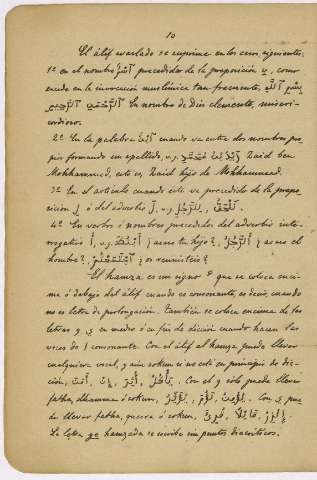 10
El álif uaslado se suprime en los casos siguientes:
1º en el nombre اسْمٌ precedido de la preposición بِ, como
sucede en la invocación muslímica tan frecuente,
بِسْمِ اللَّهِ الرَّحْمَنِ الرَّحِيمِ En nombre de Dios clemente, miseri-
cordioso.
2º En la palabra ابْنٌ cuando va entre dos nombres pro-
pios formando un apellido, v.g. زَيْدُ بْنُ مُحَمَّدٍ Zaid ben
Mohhammed, esto es Zaid hijo de Mohhammed.
3º En el artículo cuando éste va precedido de la prepo-
sición لِ ó del adverbio لَ, لِلرَّجُلِ, لَلْحَقُّ.
4º En verbos ó nombres precedidos del adverbio inte-
rrogativo أَ, v.g. ¿acaso tu hijo?, ¿acaso el
hombre?, ¿os reunisteis?
El hamza es un signo ء que se coloca enci-
ma ó debajo del álif cuando es consonante, es decir, cuando
no es letra de prolongación. También se coloca encima de las
letras و y ى en medio ó en fin de dicción cuando hacen las
veces de ا consonante. Con el álif el hamza puede llevar
cualquiera vocal, y aún sokun si no está en principio de dic-
ción, Con el و sólo puede llevar
fatha, dhamma ó sokun, Con ى pue
de llevar fatha, quesra ó sokun,
La letra ya hamzada se escribe sin puntos diacríticos.